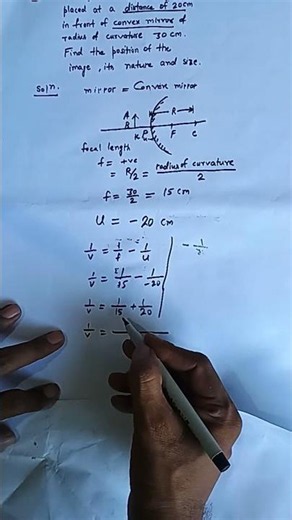 placed at a distance of 20cm
in front of convex mirror of
radius of curvature 30 cm.
Find the position of the
image, its nature and size.
Soln.
mirror = Convex mirror
A
R
P F C
focal length
f = +ve
= R/2 = radius of curvature / 2
f = 30/2 = 15 cm
u = - 20 cm
1/v = 1/f - 1/u
1/v = 1/15 - 1/-20
1/v = 1/15 + 1/20
1/v =